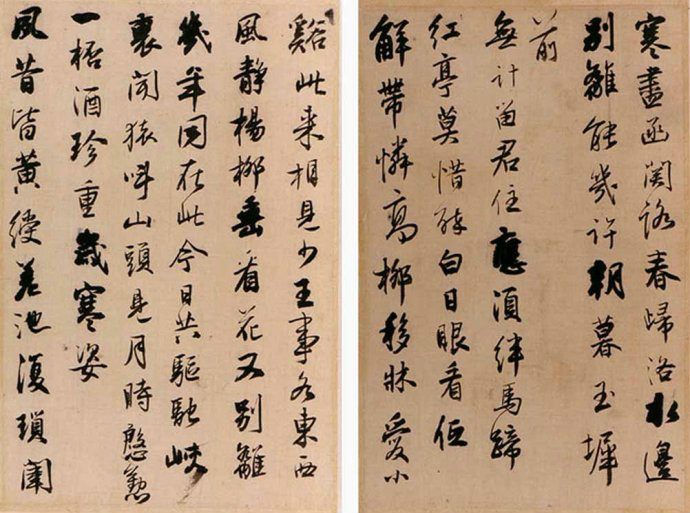 寒盡函関路春歸洛水邊
別離能幾許朝暮玉墀
前
無計留君住應須絆馬蹄
紅亭莫惜醉白日眼看低
解帶憐高柳移牀愛小
谿此来相見少王事各東西
風靜楊柳垂看花又別離
幾年同在此今日共驅馳峽
裏聞猿叫山頭見月時慇懃
一桮酒珍重歲寒姿
夙昔皆黃綬差池復瑣闈